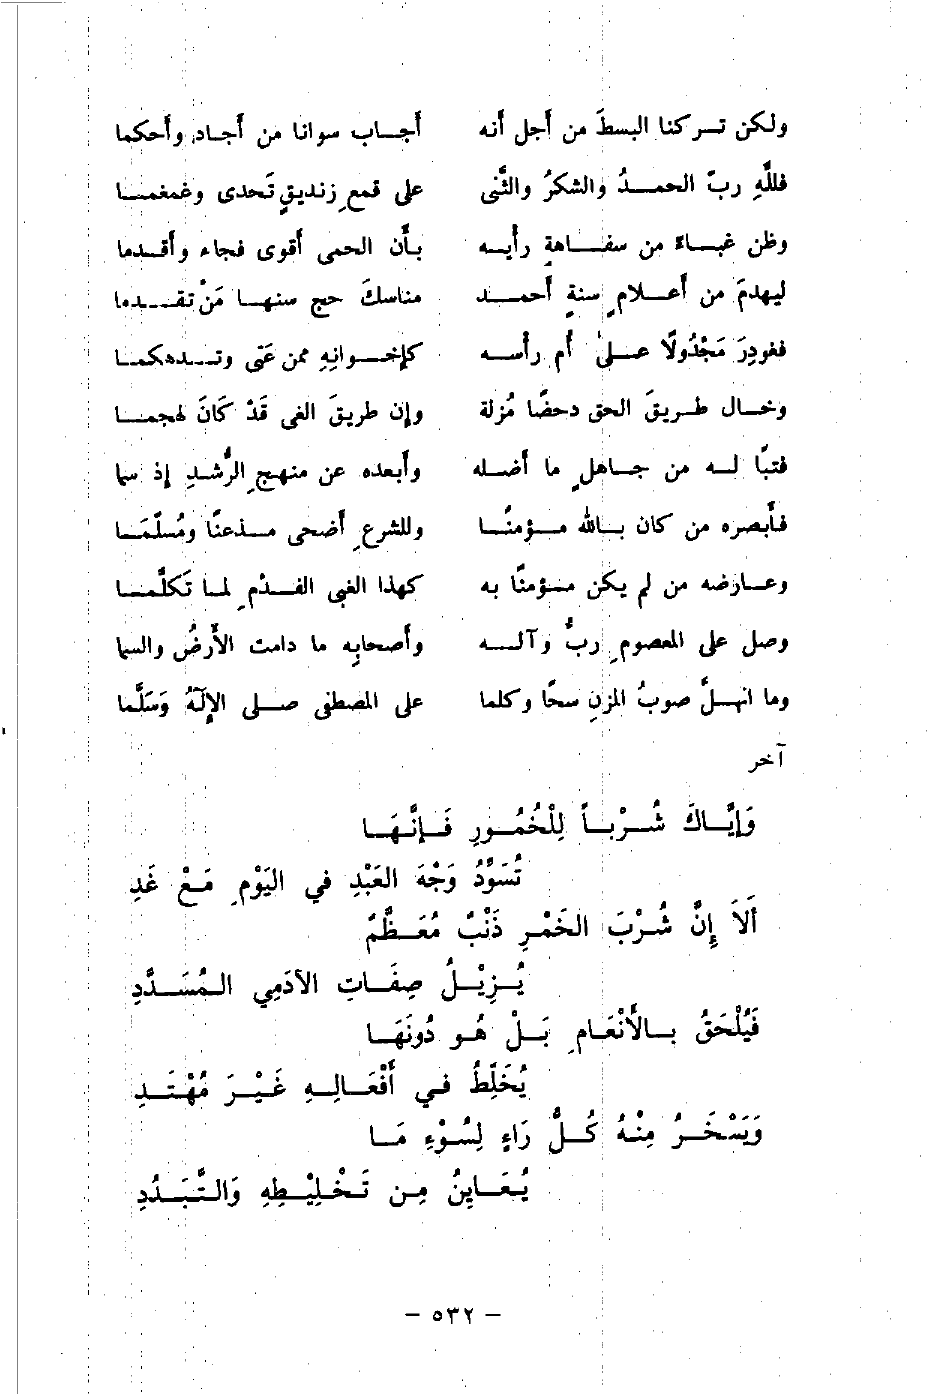 ولكن تركنا البسطَ من أجل أنه أجاب سوانا من أجاد وأحكما
فللَّهِ ربّ الحمدُ والشكرُ والثَّنى على قمعِ زنديقٍ تَحدى وغمغما
وظن غباءً من سفاهةِ رأيه بأن الحمى أقوى فجاء وأقدما
ليهدمَ من أعلامِ سنةِ أحمد مناسكَ حج سنها مَنْ تقدما
فغودِرَ مَجْدُولًا على أم رأسه كإخوانِهِ ممن عَتى وتدهكما
وخال طريقَ الحق دحضًا مُزلة وإن طريقَ الغى قَدْ كَانَ لهجما
فتبًّا له من جاهلٍ ما أضله وأبعده عن منهجِ الرُّشدِ إذ سما
فأبصره من كان بالله مؤمنًا وللشرعِ أضحى مذعنًا ومُسلّمَا
وعارضه من لم يكن مؤمنًا به كهذا الغبى الفدْمِ لما تَكلَّما
وصل على المعصومِ ربُّ وآله وأصحابِه ما دامت الأرضُ والسما
وما انهلَّ صوبُ المزنِ سحًّا وكلما على المصطفى صلى الإلَهُ وَسَلَّما
آخر
وَإيَّاكَ شُرْباً لِلْخُمُورِ فَإنَّهَا
تُسَوَّدُ وَجْهَ العَبْدِ في اليَوْمِ مَعْ غَدِ
أَلاَ إِنَّ شُرْبَ الخَمْرِ ذَنْبٌ مُعَظَّمٌ
يُزِيْلُ صِفَاتِ الآدَمِي المُسَدَّدِ
فَيُلْحَقُ بالأَنْعَامِ بَلْ هُو دُونَهَا
يُخَلِّطُ في أَفْعَالِهِ غَيْرَ مُهْتَدِ
وَيَسْخَرُ مِنْهُ كُلُّ رَاءٍ لِسُوْءِ مَا
يُعَايِنُ مِن تَخْلِيْطِهِ وَالتَّبَدُدِ
– ٥٣٢ –